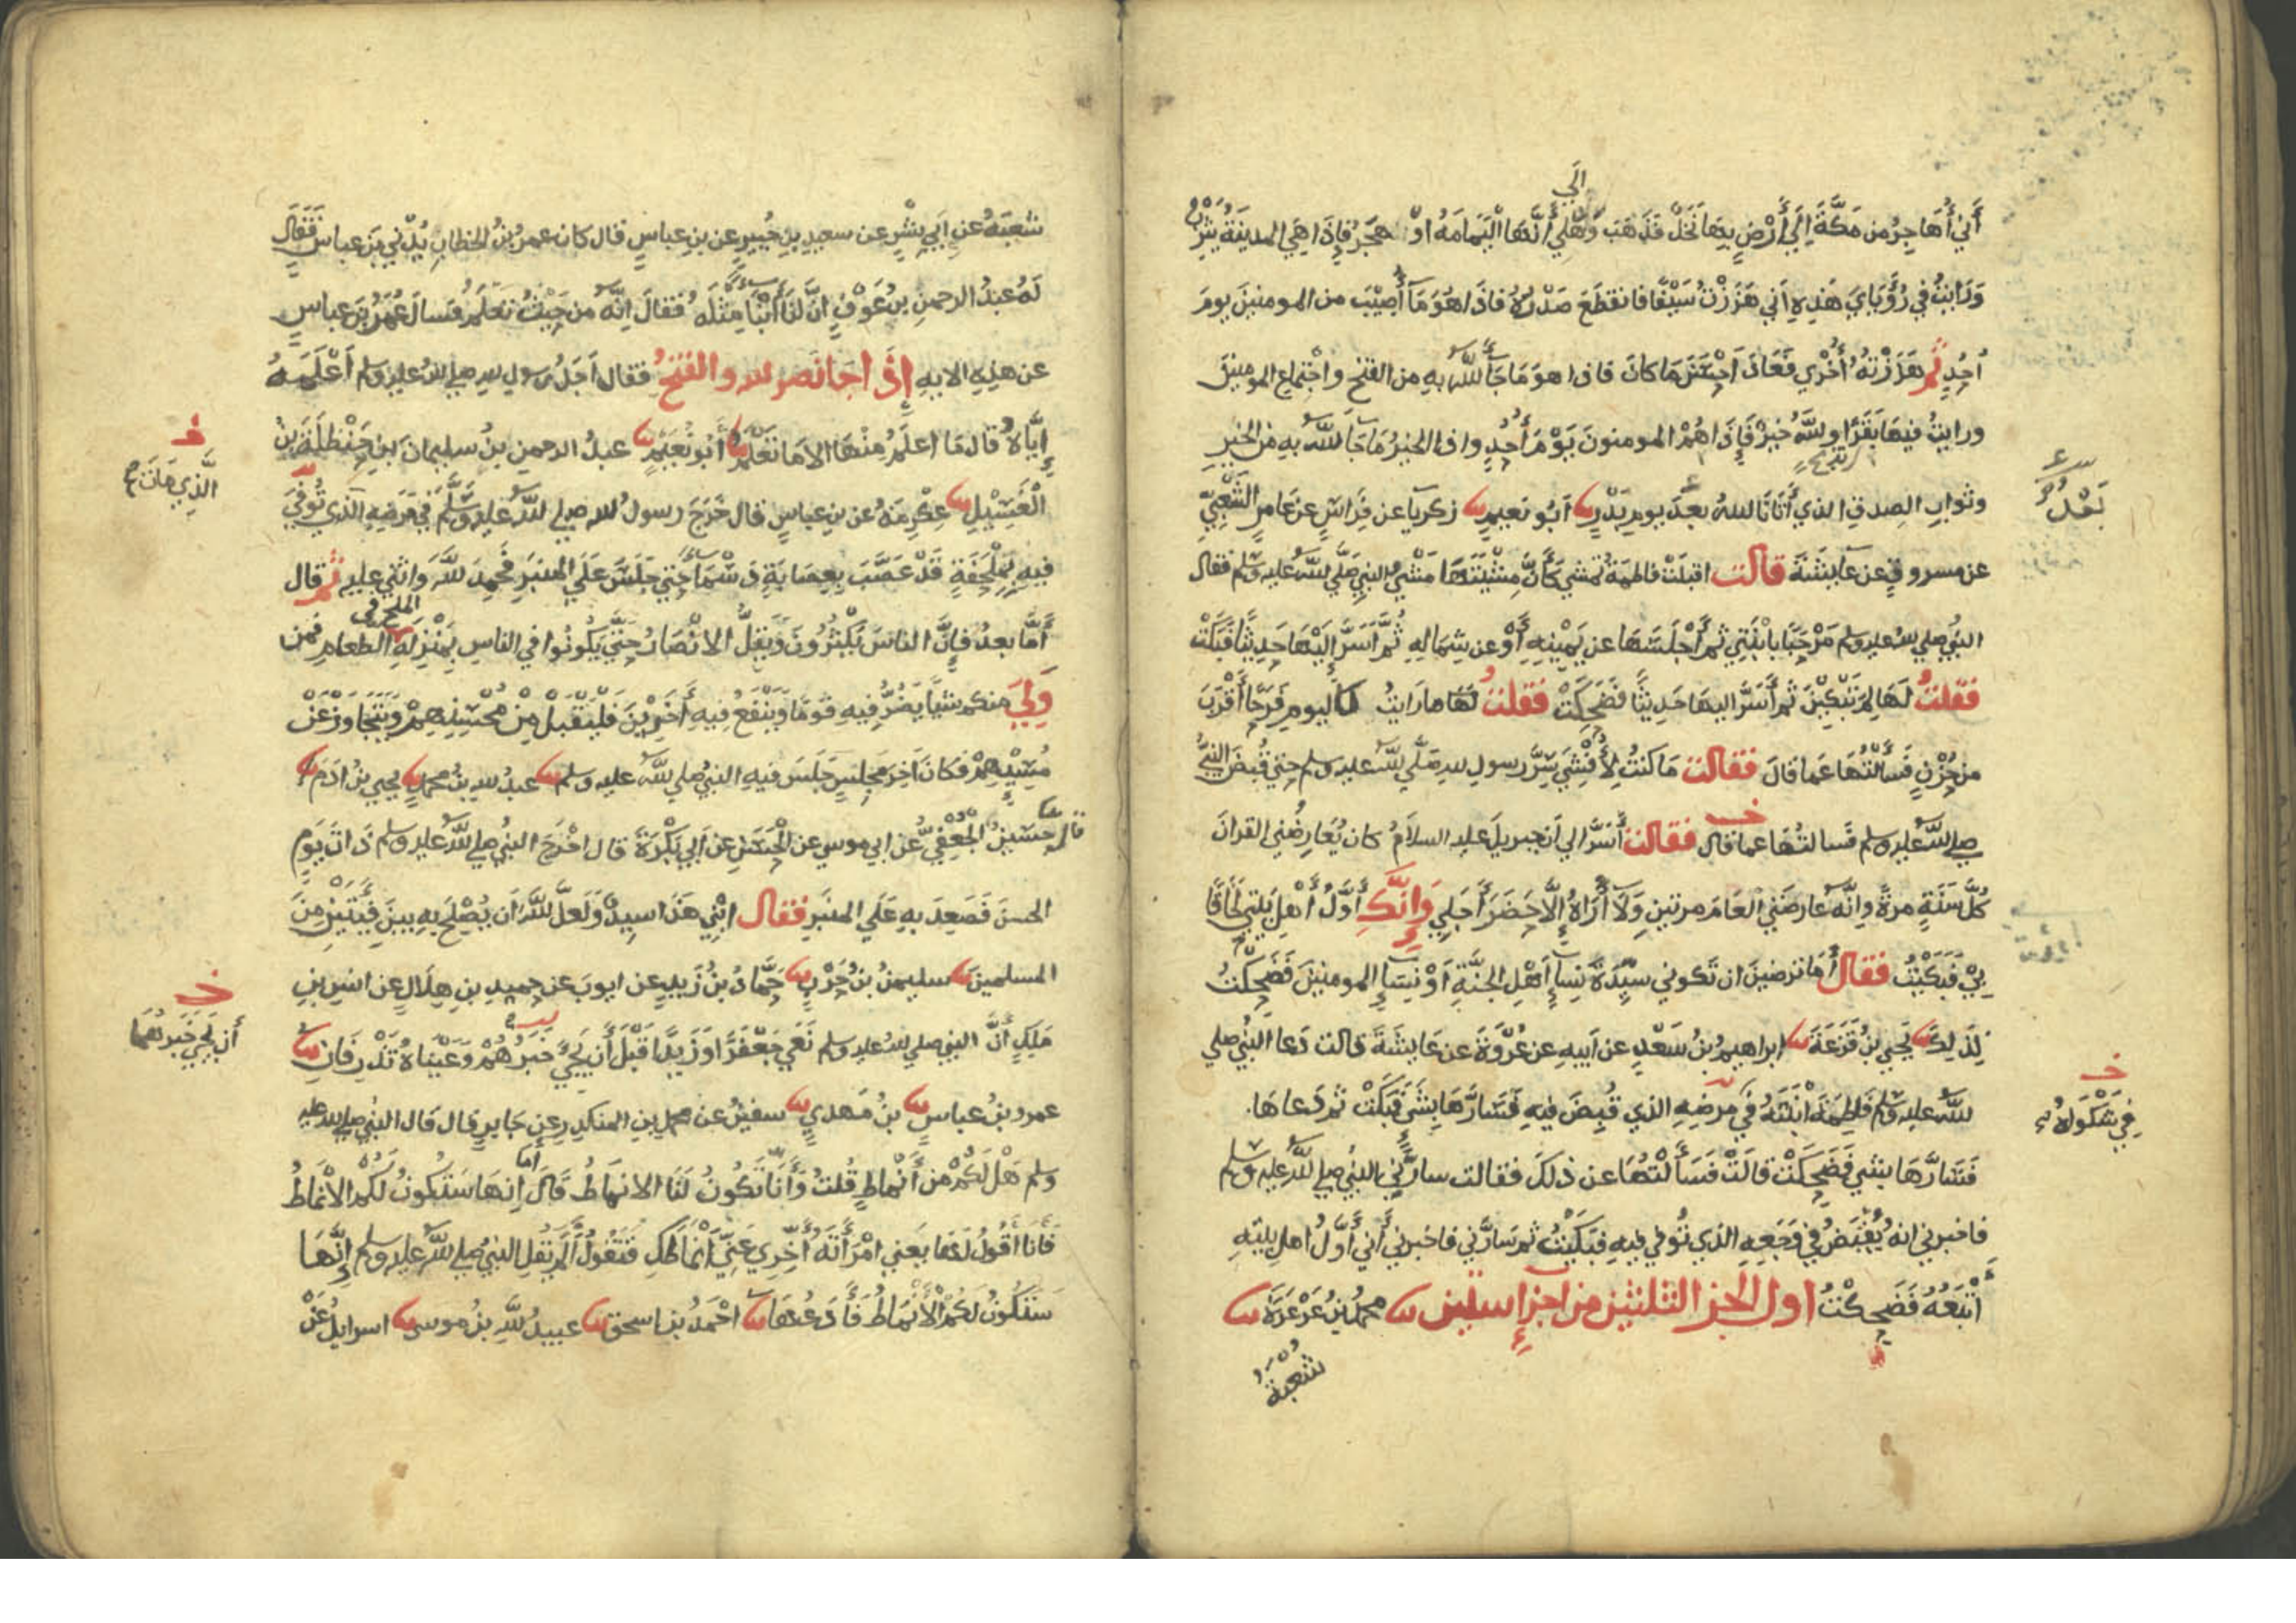 الي
أَنِّي أُهَاجِرُ من مَكَّةَ إِلَي أَرْضٍ بِهَا نَخْلٌ فَذَهَبَ وَهْلِي أَنَّهَا الْيَمَامَةُ اوْ هَجَرُ فإِذَا هِيَ المدينَةُ يَثْرِبُ
وَرَايْتُ فِي رُؤْيَايَ هَذِهِ اَنِّي هَزَزْتُ سَيْفًا فانقطَعَ صَدْرُهُ فاذَا هُوَ مَآ أُصِيْبَ من المومنينَ يومَ
اُحُدٍ ثُمَّ هَزَزْتُهُ أُخْرَي فَعَادَ اَحْسَنَ مَا كانَ فاذا هوَ مَا جَآ اللهُ بهِ من الفتحِ واجْتِماعِ المومنينَ
ورايتُ فيهَا بَقَرًا واللَّهُ خَيْرٌ فَإِذَا هُمُ المومنونَ يَوْمَ أُحُدٍ واذا الخيرُ مَا جَا اللَّهُ بهِ من الخيرِ
وثوابِ الصِدقِ الذي أَتَانَا اللهُ بعدَ يومِ بَدْرٍ ۝ اَبُو نعيمٍ ۝ زكريا عن فِرَاسٍ عن عَامِرٍ الشَّعْبِيِّ
بَعْدُ
عن مسروقٍ عن عايِشَةَ قالت اقبلَتْ فاطمَةُ تمشي كَأَنَّ مِشْيَتَهَا مَشْيُ النبيِ صَلَّي اللهُ عليهِ وسَلم فقال
النبيُّ صلي اللهُ عليه وسلم مَرْحَبًا يابْنَتِي ثم أَجْلَسَهَا عن يَمِيْنِهِ أَوْ عن شِمَالِهِ ثُمَّ أَسَرَّ إِلَيْهَا حَدِيثًا فَبَكَتْ
فقلتُ لَهَا لِمَ تَبْكِيْنَ ثم أَسَرَّ اليهَا حَدِيثًا فَضَحِكَتْ فقلتُ لَهَا ما رَايتُ كاليومِ فَرَحًا أَقْرَبَ
من حُزْنٍ فَسَأَلْتُهَا عما قالَ فقالت مَا كنتُ لِأُفْشِيَ سِرَّ رسولِ اللهِ صَلَّي اللهُ عليه وسلم حتي قُبِضَ النبيُّ
صلي اللهُ عليه وسلم فَسَالتُهَا عما قال فقالت أَسَرَّ الي اَن جبريلَ عليه السلامُ كان يُعَارِضُنِي القرانَ
كُلَّ سَنَةٍ مرةً وانَّه عارضَنِي الْعَامَ مرتينِ وَلَآ أُرَاهُ إِلَّا حَضَرَ أَجَلِي وَإِنَّكِ أَوَّلُ أَهْلِ بَيْتِي لَحَاقًا
بِيْ فَبَكَيْتُ فقال أَمَا ترضينَ ان تَكوني سيِّدَةَ نِسَآءِ أَهْلِ الجنَّةِ اَوْ نِسَآءِ المومنينَ فَضَحِكْتُ
لِذَلِكَ ۝ يَحْيي بنُ قَزَعَةَ ۝ ابراهيمُ بنُ سَعْدٍ عن اَبيهِ عن عُرْوَةَ عن عَايِشَةَ قالت دَعَا النبيُّ صلي
اللهُ عليه وسلم فَاطِمَةَ ابْنَتَهُ فِي مرضِهِ الذي قُبِضَ فيهِ فَسَارَّهَا بِشَيْءٍ فَبَكَتْ ثم دَعَاهَا
فِي شَكْوَاهُ
فَسَارَّهَا بشيءٍ فَضَحِكَتْ قالَتْ فَسَأَلْتُهَا عن ذلكَ فقالت سارَّنِي النبيُّ صلي اللهُ عليه وسلم
فاخبرني انهُ يُقْبَضُ في وَجَعِهِ الذي تُوفي فيهِ فبَكَيْتُ ثم سَارَّني فاخبرني أَنِّي أَوَّلُ اهلِ بيتِهِ
أَتْبَعُهُ فَضَحِكْتُ اول الجز الثلثين من اجزاء ستين ۝ محمدُ بنُ عَرْعَرَةَ ۝
شُعْبَةُ
شُعْبَةُ عن اَبِي بِشْرٍ عن سعيدِ بنِ جُبَيرٍ عن بنِ عباسٍ قال كان عمرُ بنُ الخطابِ يُدْنِي بنَ عباسٍ فَقَالَ
لَهُ عبدُ الرحمنِ بنُ عَوْفٍ اِنَّ لنَا أَبْنَآءً مِثْلَهُ فقالَ اِنَّه من حَيْثُ تَعْلَمُ فَسالَ عُمَرُ بنَ عباسٍ
عن هذِهِ الايةِ إِذَا جَا نَصر الله والفتحُ فقال اَجَلُ رسولِ اللهِ صلي اللهُ عليه وسلم أَعْلَمَهُ
إِيَّاهُ قال مَا اعلَمُ مِنْهَا الا مَا تَعْلَمُ ۝ أَبُو نُعَيْمٍ ۝ عبدُ الرحمنِ بنُ سليمانَ بنِ حَنْظَلَةَ بنِ
الْغَسِيْلِ ۝ عِكْرِمَةُ عن بنِ عباسٍ قال خَرَجَ رسولُ الله صلي اللهُ عليهِ وسَلَّمَ فِي مَرَضِهِ الذي تُوُفِّيَ
الَّذِي مَاتَ
فيهِ بِمِلْحَفَةٍ قَدْ عَصَّبَ بِعِصَابَةٍ دَسْمَآءَ حتي جَلَسَ عَلَي المنبَرِ فحمِدَ اللَّهَ واثني عليهِ ثم قال
أَمَّا بعدُ فإِنَّ الناسَ يَكْثُرُونَ وَيَقِلُّ الانْصَارُ حتَّي يَكونُوا في الناسِ بِمَنْزِلَةِ الملح في الطعامِ فمن
وَلِيَ منكم شيْأ يَضُرُّ فيهِ قومًا وَيَنْفَعُ فيهِ أَخَرِيْنَ فَلْيَقْبَلْ مِنْ مُحْسِنِهِمْ وَيَتَجَاوَزْ عَنْ
مُسِيْئِهِمْ فكانَ آخِرَ مجلِسٍ جَلَسَ فيهِ النبيُّ صلي اللهُ عليه وسلم ۝ عبدُ اللهِ بنُ محمدٍ ۝ يحيي بنُ ادَمَ ۝
قال حُسَينٌ الْجُعْفِيُّ عن ابي موسي عن الْحَسَنِ عن اَبي بَكْرَةَ قال اخْرَجَ النبيُّ صلي اللهُ عليه وسلم ذَاتَ يَوْمٍ
الحسنَ فَصَعِدَ بهِ عَلَي المنبَرِ فقال ابْنِي هَذَا سيدٌ وَلَعَلَّ اللَّهَ أَن يُصْلِحَ بهِ بينَ فِئَتَيْنِ مِنَ
المسلمينَ ۝ سليمنُ بنُ حَرْبٍ ۝ حَمَّادُ بنُ زَيدٍ عن ايوبَ عن حميدِ بنِ هِلَالٍ عن انسِ بنِ
مَلِكٍ أَنَّ النبيَّ صلي اللهُ عليه وسلم نَعَي جَعْفَرًا وَزَيدًا قَبْلَ أَن يَجِيْءَ خَبَرُهُمْ وَعَيْنَاهُ تَذْرِفَانِ ۝
أن يَجِيْ خَبَرُهُمَا
عمرو بنُ عباسٍ ۝ بنُ مَهديٍ ۝ سفينُ عن محمدِ بنِ المنكدِرِ عن جَابرٍ قال قال النبي صلي الله عليه
وسلم هَلْ لَكُمْ من أَنْمَاطٍ قُلتُ وَأَنَّا تَكُونُ لَنَا الانمَاطُ قَالَ اَمَا اِنهَا سَتَكونُ لَكُمُ الأَنْمَاطُ
فَأَنَا أَقُولُ لَهَا يَعني امْرَأَتَهُ أَخِّرِي عَنِّي أَنْمَاطَكِ فَتَقُولُ أَلَمْ يَقُلِ النبيُّ صلي اللهُ عليه وسلم إِنَّهَا
سَتَكُونُ لَكُمُ الأَنْمَاطُ فَأَدَعُهَا ۝ احْمَدُ بن اسحق ۝ عبيدُ اللَّهِ بنُ موسي ۝ اسرايلُ عَنْ